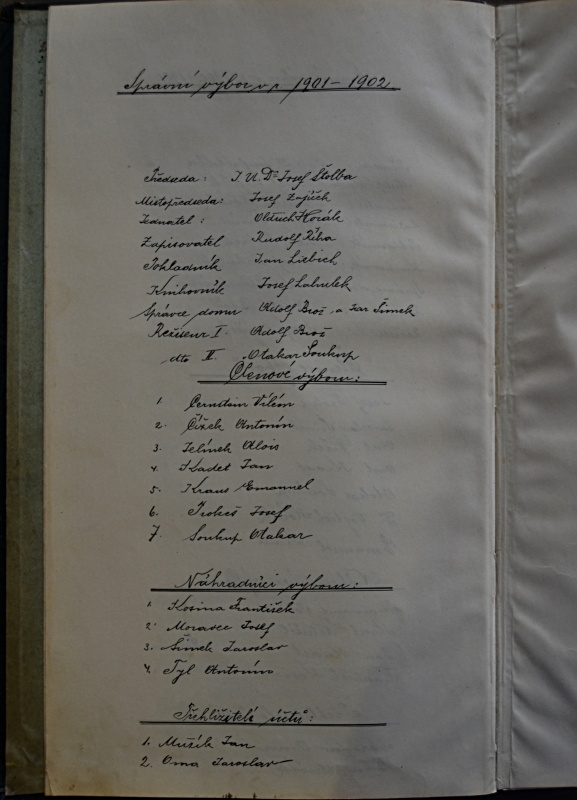 Správní výbor v r 1901 – 1902
Předseda: J. U. Dr Josef Štolba
Místopředseda: Josef Zajíček
Jednatel: Oldřich Horák
Zapisovatel Rudolf Říha
Pokladník Jan Liebich
Knihovník Josef
Správce domu Adolf Brož a Jar Šimek
Režiseur I. Adolf Brož
dto II. Otakar Soukup
Členové výboru:
1. Vilém
2. Čížek Antonín
3. Jelínek Alois
4. Kadet Jan
5. Kraus Emanuel
6. Josef
7. Soukup Otakar
Náhradníci výboru:
1. Kosina František
2. Moravec Josef
3. Šimek Jaroslav
4. Tyl Antonín
Přehližitelé účtů:
1. Mužík Jan
2. Oma Jaroslav